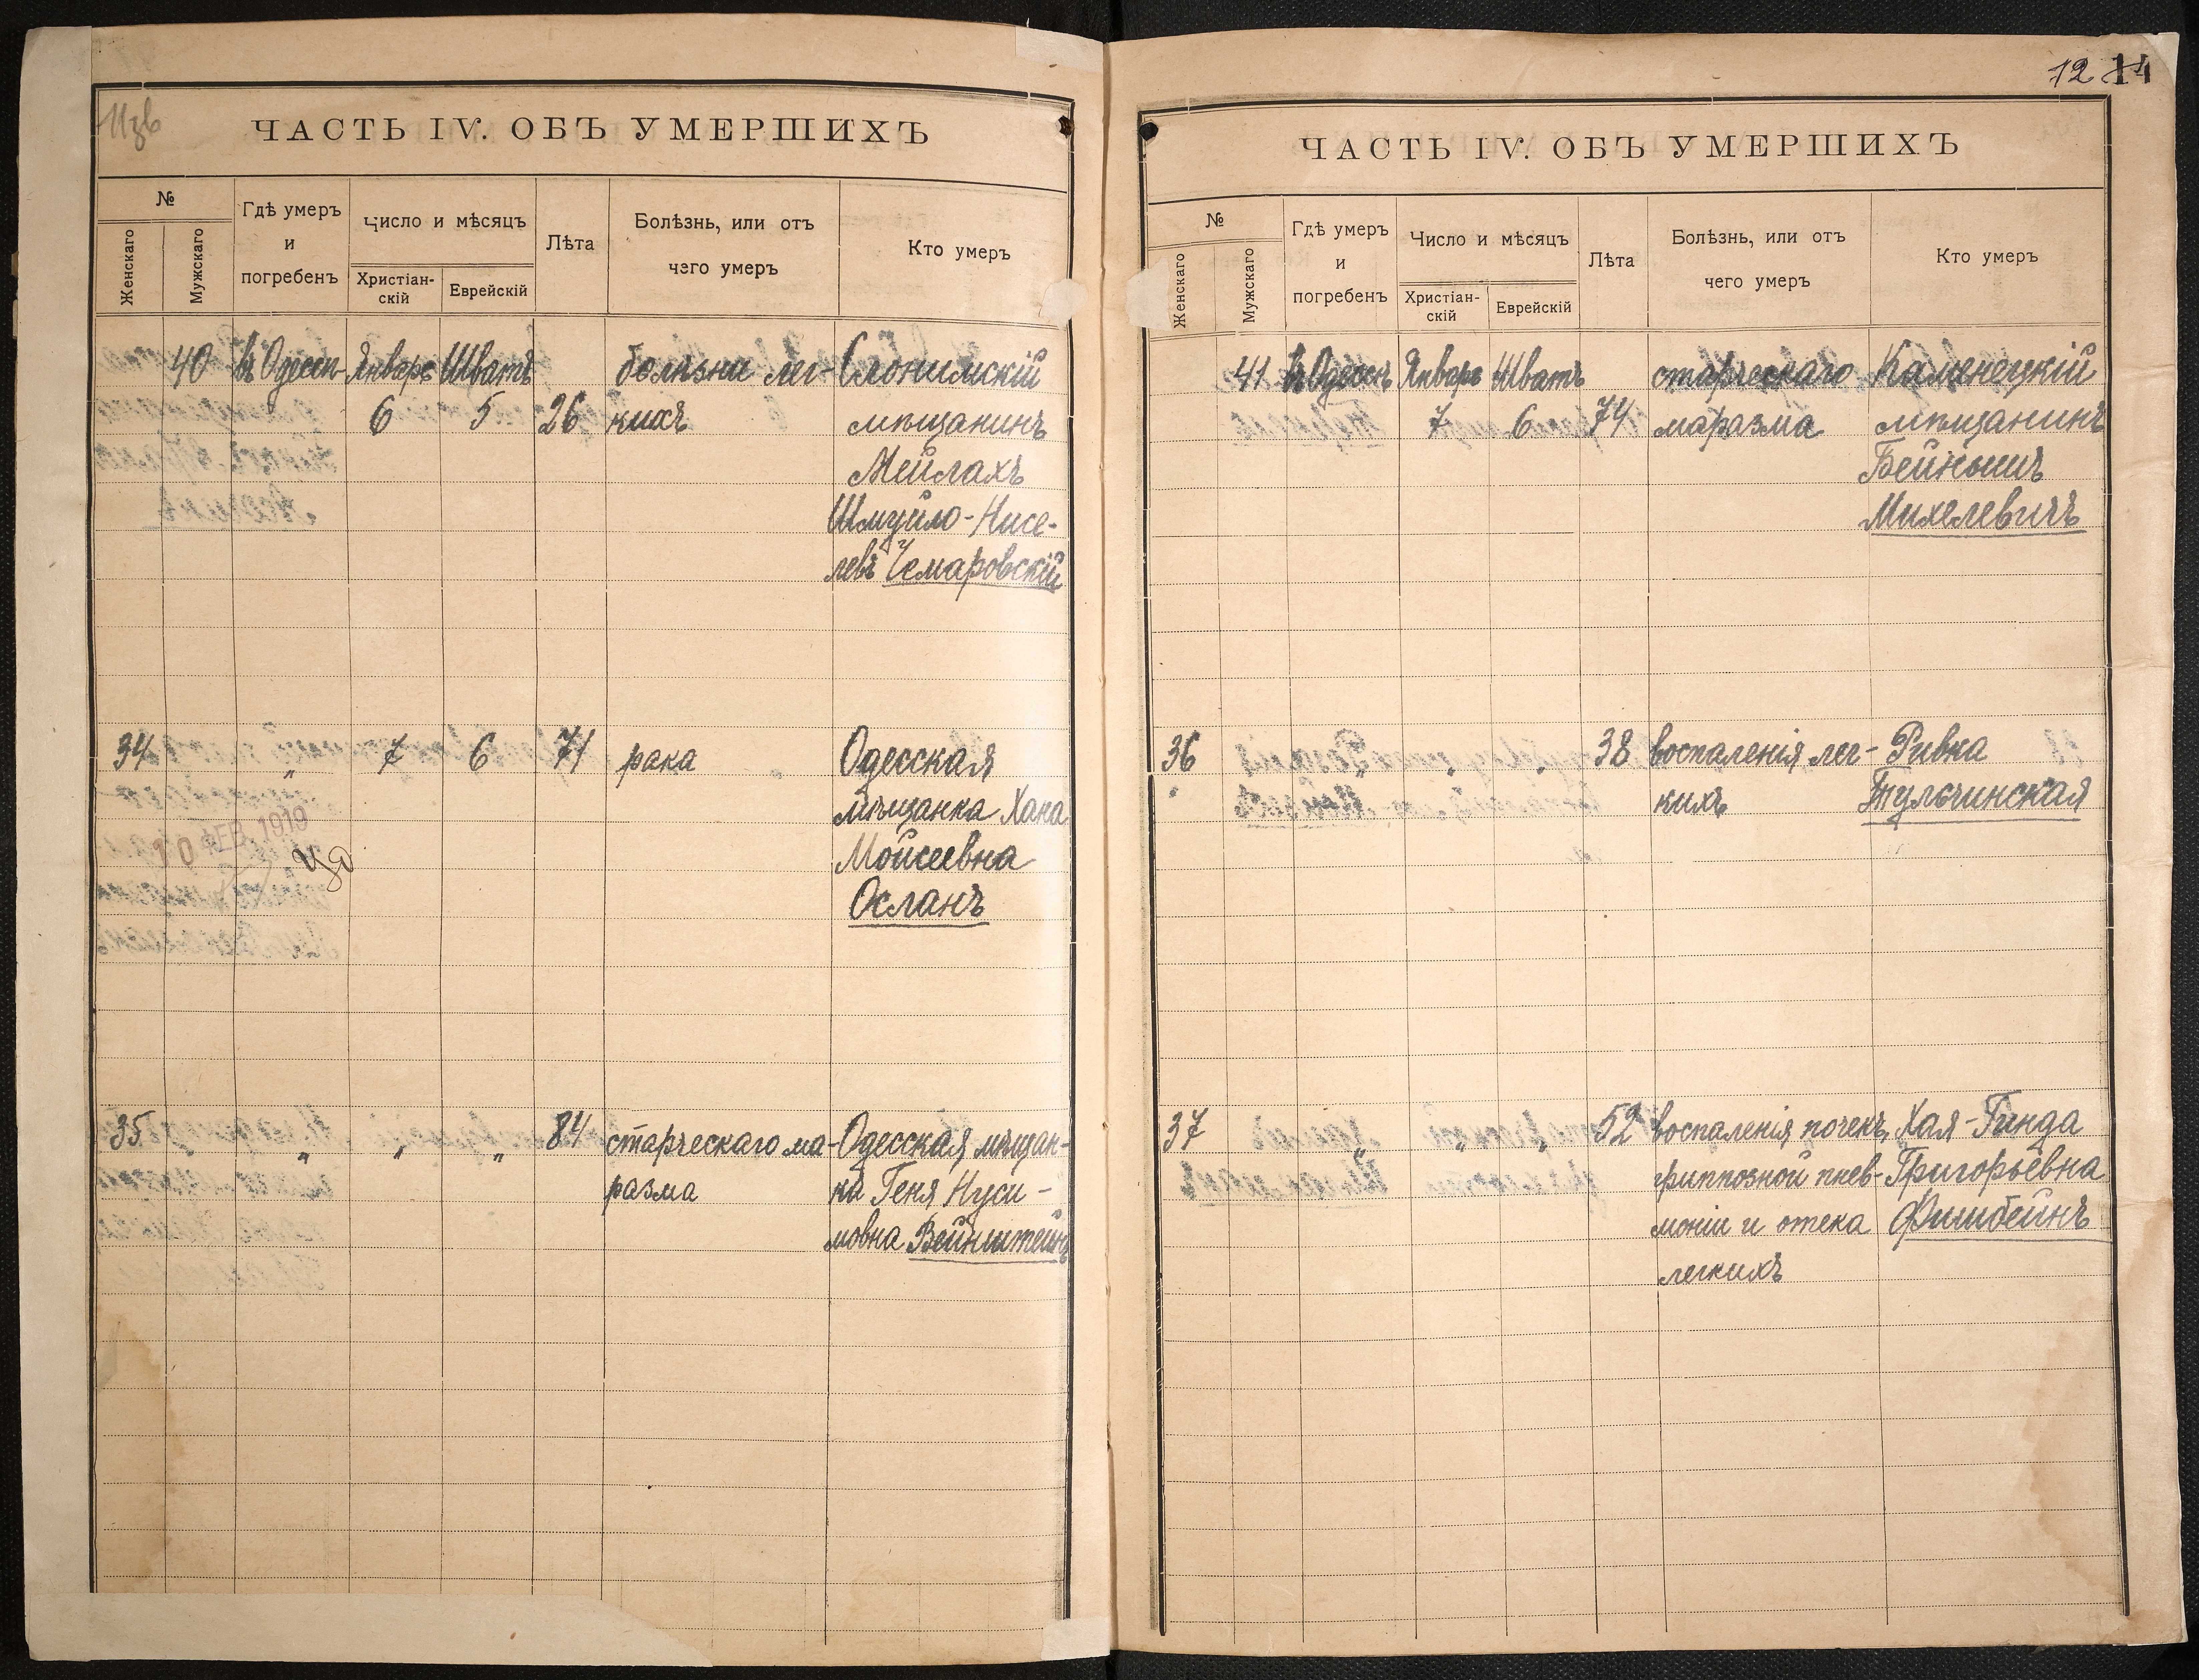 ЧАСТЬ IV. ОБЪ УМЕРШИХЪ
№
Женскаго
Мужскаго
Гдѣ умеръ
и
погребенъ
Число и мѣсяцъ
Христіан-
скій
Еврейскій
Лѣта
Болѣзнь, или отъ
чего умеръ
Кто умеръ
40 въ Одессѣ Январь Шватъ болѣзни лег- Слонимскій
6 5 26 кихъ мѣщанинъ
Мейлахъ
Шмуйло-Нисе-
левъ Чемаровскій
34 " 7 6 71 рака Одесская
мѣщанка Хана
Мойсеевна
Осланъ
10 ФЕВ. 1919
35 " " " 84 старческаго ма- Одесская мѣщан-
разма ка Геня Нуси-
мовна Вейнштейнъ
12 14
ЧАСТЬ IV. ОБЪ УМЕРШИХЪ
№
Женскаго
Мужскаго
Гдѣ умеръ
и
погребенъ
Число и мѣсяцъ
Христіан-
скій
Еврейскій
Лѣта
Болѣзнь, или отъ
чего умеръ
Кто умеръ
41 въ Одессѣ Январь Шватъ старческаго Каменецкій
7 6 74 маразма мѣщанинъ
Бейнышъ
Михелевичъ
36 " " " 38 воспаленія лег- Ривка
кихъ Тульчинская
37 " " " 52 воспаленія почекъ, Хая-Гинда
гриппозной пнев- Григорьевна
моніи и отека Фишбейнъ
легкихъ